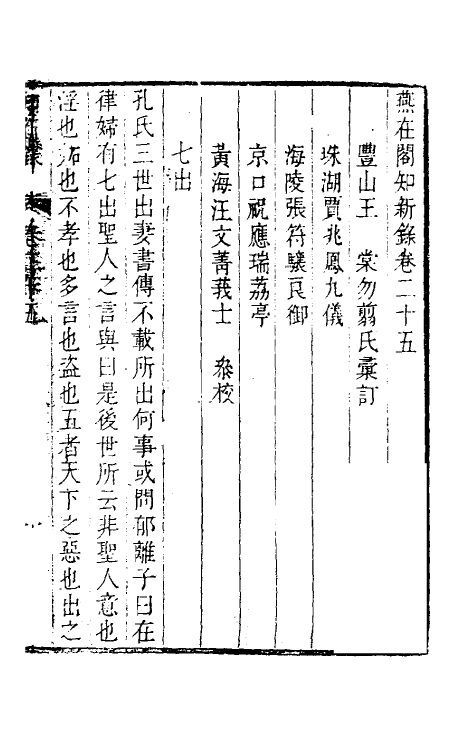 燕在閣知新錄卷二十五
豐山王　棠勿翦氏彙訂
珠湖賈兆鳳九儀
海陵張符驤良御
京口祝應瑞荔亭
黃海汪文菁莪士　叅校
七出
孔氏三世出妻書傳不載所出何事或問郁離子曰在
律婦有七出聖人之言與曰是後世所云非聖人意也
淫也妬也不孝也多言也盜也五者天下之惡也出之